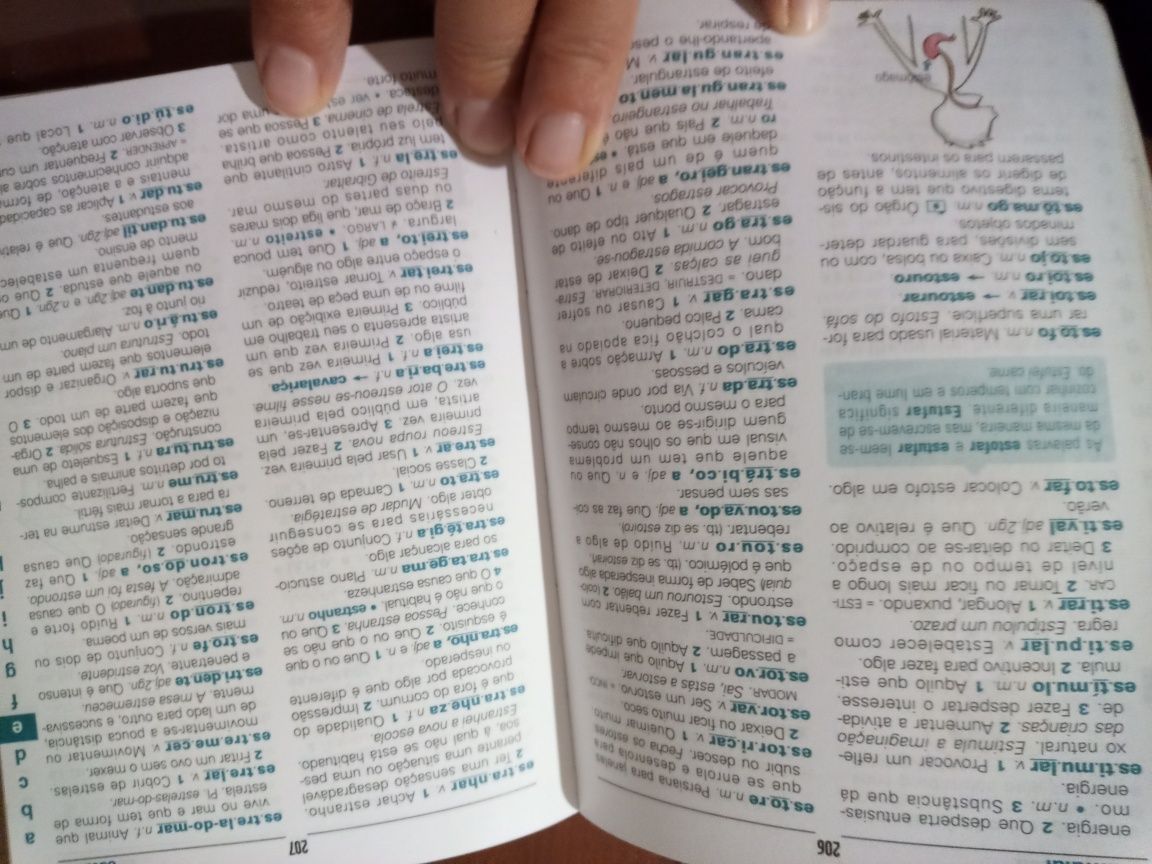 206
energia. 2 Que desperta entusias-
mo. • n.m. 3 Substância que dá
energia.
es.ti.mu.lar v. 1 Provocar um refle-
xo natural. Estimula a imaginação
das crianças. 2 Aumentar a ativida-
de. 3 Fazer despertar o interesse.
es.tí.mu.lo n.m. 1 Aquilo que esti-
mula. 2 Incentivo para fazer algo.
es.ti.pu.lar v. Estabelecer como
regra. Estipulou um prazo.
es.ti.rar v. 1 Alongar, puxando. = ESTI-
CAR. 2 Tornar ou ficar mais longo a
nível de tempo ou de espaço.
3 Deitar ou deitar-se ao comprido.
es.ti.val adj.2gn. Que é relativo ao
verão.
es.to.far v. Colocar estofo em algo.
As palavras estofar e estufar leem-se
da mesma maneira, mas escrevem-se de
maneira diferente. Estufar significa
cozinhar com temperos e em lume bran-
do. Estufei carne.
es.to.fo n.m. Material usado para for-
rar uma superfície. Estofo do sofá.
es.toi.rar v. → estourar
es.toi.ro n.m. → estouro
es.to.jo n.m. Caixa ou bolsa, com ou
sem divisões, para guardar deter-
minados objetos.
es.tô.ma.go n.m. Órgão do sis-
tema digestivo que tem a função
de digerir os alimentos, antes de
passarem para os intestinos.
estômago
es.to.re n.m. Persiana para janelas
que se enrola e desenrola para
subir ou descer. Fecha os estores.
es.tor.ri.car v. 1 Queimar muito.
2 Deixar ou ficar muito seco.
es.tor.var v. Ser um estorvo. = INCO-
MODAR. Sai, estás a estorvar.
es.tor.vo n.m. 1 Aquilo que impede
a passagem. 2 Aquilo que dificulta
= DIFICULDADE.
es.tou.rar v. 1 Fazer rebentar com
estrondo. Estourou um balão. 2 (colo-
quial) Saber de forma inesperada algo
que é polémico. (tb. se diz estoirar)
es.tou.ro n.m. Ruído de algo a
rebentar. (tb. se diz estoiro)
es.tou.va.do, a adj. Que faz as coi-
sas sem pensar.
es.trá.bi.co, a adj. e n. Que ou
aquele que tem um problema
visual em que os olhos não conse-
guem dirigir-se ao mesmo tempo
para o mesmo ponto.
es.tra.da n.f. Via por onde circulam
veículos e pessoas.
es.tra.do n.m. 1 Armação sobre a
qual o colchão fica apoiado na
cama. 2 Palco pequeno.
es.tra.gar v. 1 Causar ou sofrer
dano. = DESTRUIR, DETERIORAR. Estra-
guei as calças. 2 Deixar de estar
bom. A comida estragou-se.
es.tra.go n.m. 1 Ato ou efeito de
estragar. 2 Qualquer tipo de dano.
Provocar estragos.
es.tran.gei.ro, a adj. e n. 1 Que ou
quem é de um país diferente
daquele em que está. •
ro n.m. 2 País que não é
Trabalhar no estrangeiro.
es.tran.gu.la.men.to
efeito de estrangular.
es.tran.gu.lar v. M
apertando-lhe o pesc
de respirar.
207
es.tra.nhar v. 1 Achar estranho.
2 Ter uma sensação desagradável
perante uma situação ou uma pes-
soa, à qual não se está habituado.
Estranhei a nova escola.
es.tra.nhe.za n.f. 1 Qualidade do
que é fora do comum. 2 Impressão
provocada por algo que é diferente
ou inesperado.
es.tra.nho, a adj. e n. 1 Que ou o que
é esquisito. 2 Que ou o que não se
conhece. Pessoa estranha. 3 Que ou
o que não é habitual. • estranho n.m.
4 O que causa estranheza.
es.tra.ta.ge.ma n.m. Plano astucio-
so para alcançar algo.
es.tra.té.gi.a n.f. Conjunto de ações
necessárias para se conseguir
obter algo. Mudar de estratégia.
es.tra.to n.m. 1 Camada de terreno.
2 Classe social.
es.tre.ar v. 1 Usar pela primeira vez.
Estreou roupa nova. 2 Fazer pela
primeira vez. 3 Apresentar-se, um
artista, em público pela primeira
vez. O ator estreou-se nesse filme.
es.tre.ba.ri.a n.f. → cavalariça
es.trei.a n.f. 1 Primeira vez que se
usa algo. 2 Primeira vez que um
artista apresenta o seu trabalho em
público. 3 Primeira exibição de um
filme ou de uma peça de teatro.
es.trei.tar v. Tornar estreito, reduzir
o espaço entre algo ou alguém.
es.trei.to, a adj. 1 Que tem pouca
largura. ≠ LARGO. • estreito n.m.
2 Braço de mar, que liga dois mares
ou duas partes do mesmo mar.
Estreito de Gibraltar.
es.tre.la n.f. 1 Astro cintilante que
tem luz própria. 2 Pessoa que brilha
pelo seu talento como artista.
Estrela de cinema. 3 Pessoa que se
destaca. • ver es uma dor
muito forte.
es.tre.la-do-mar n.f. Animal que
vive no mar e que tem forma de
estrela. Pl. estrelas-do-mar.
es.tre.lar v. 1 Cobrir de estrelas.
2 Fritar um ovo sem o mexer.
es.tre.me.cer v. Movimentar ou
movimentar-se a pouca distância,
de um lado para outro, e sucessiva-
mente. A mesa estremeceu.
es.tri.den.te adj.2gn. Que é intenso
e penetrante. Voz estridente.
es.tro.fe n.f. Conjunto de dois ou
mais versos de um poema.
es.tron.do n.m. 1 Ruído forte e
repentino. 2 (figurado) O que causa
admiração. A festa foi um estrondo.
es.tron.do.so, a adj. 1 Que faz
estrondo. 2 (figurado) Que causa
grande sensação.
es.tru.mar v. Deitar estrume na ter-
ra para a tornar mais fértil.
es.tru.me n.m. Fertilizante compos-
to por detritos animais e palha.
es.tru.tu.ra n.f. 1 Esqueleto de uma
construção. Estrutura sólida. 2 Orga-
nização e disposição dos elementos
que fazem parte de um todo. 3 O
que suporta algo.
es.tru.tu.rar v. Organizar e dispor
elementos que fazem parte de um
todo. Estrutura um plano.
es.tu.á.ri.o n.m. Alargamento de um
rio junto à foz.
es.tu.dan.te adj.2gn. e n.2gn. 1 Que
ou aquele que estuda. 2 Que ou
quem frequenta um estabeleci
mento de ensino.
es.tu.dan.til adj.2gn. Que é relativ
aos estudantes.
es.tu.dar v. 1 Aplicar as capacidad
mentais e a atenção, de form
adquirir conhecimentos sobre al
= APRENDER. 2 Frequentar um cur
3 Observar com atenção.
es.tú.di.o n.m. 1 Local que
a
b
c
d
e
f
g
h
i
j